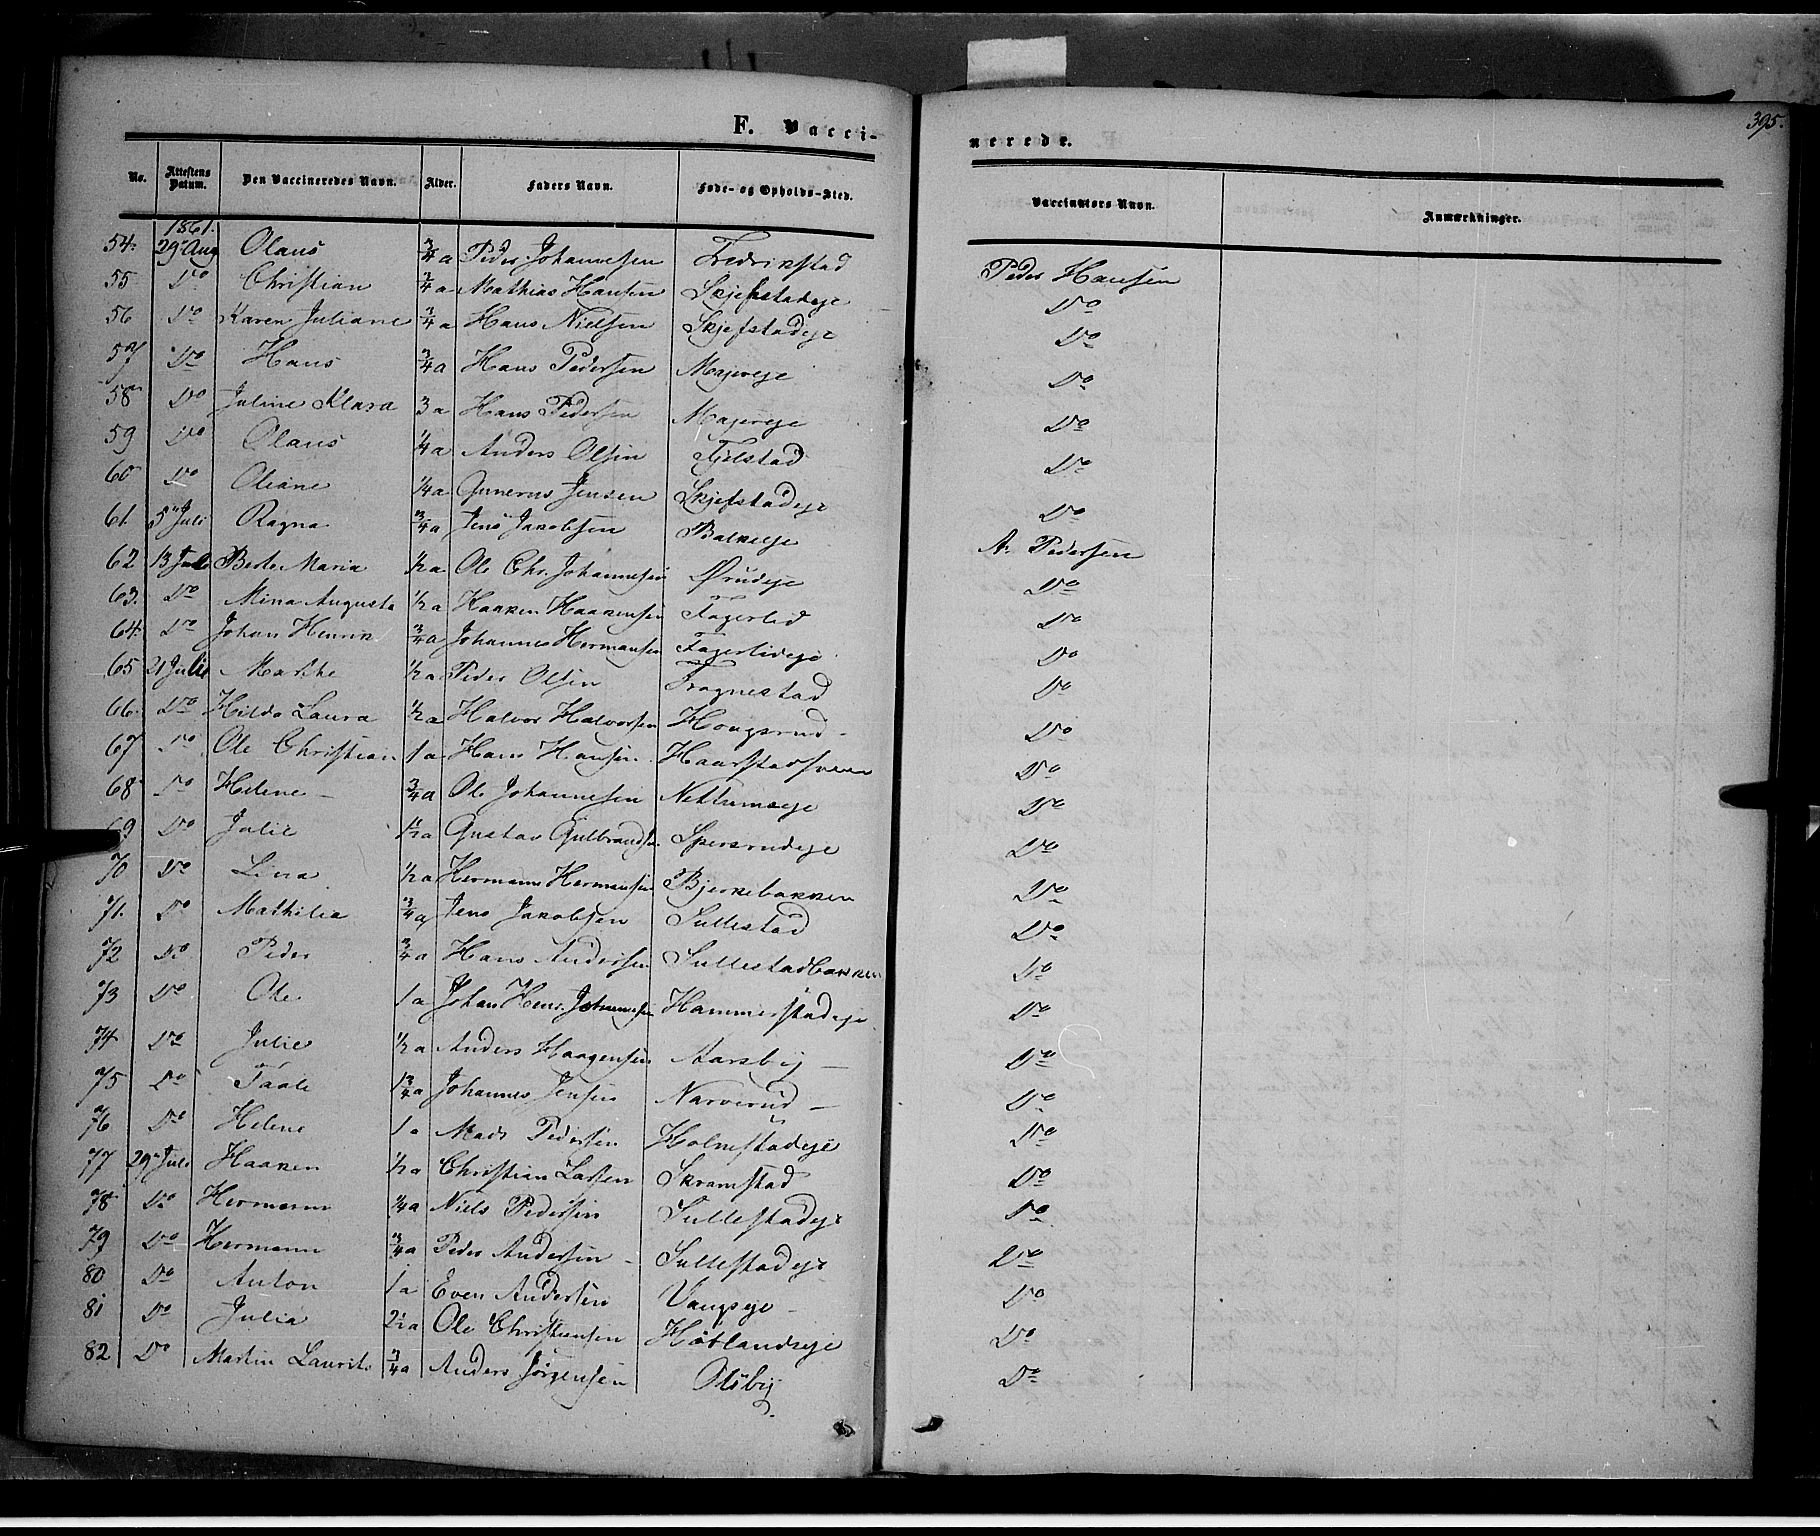 395.
F. Vacci-
nerede.
No. Attestens Datum. Den Vaccineredes Navn. Alder. Faders Navn. Føde- og Opholds-Sted. Vaccinators Navn. Anmærkninger.
1861.
54. 29 Aug Olaus 3/4 a Peder Johannesen Fredrikstad Peder Hansen
55 Do Christian 3/4 a Mathias Hansen Skjefstadeje Do
56 Do Karen Juliane 3/4 a Hans Nielsen Skjefstadeje Do
57 Do Hans 3/4 a Hans Pedersen Majereje Do
58 Do Juline Klara 3 a Hans Pedersen Majereje Do
59 Do Olaus 1/4 a Anders Olsen Fjelstad Do
60 Do Oleane 1/4 a Gunerus Jensen Skjefstadeje Do
61. 5 Juli Ragna 3/4 a Jens Jakobsen Balkeeje A. Pedersen
62 13 Juli Berte Maria 1/2 a Ole Chr. Johannesen Ørudeje Do
63. Do Mina Augusta 1/2 a Haaken Haakensen Fagerlid Do
64. Do Johan Henrik 3/4 a Johannes Hermansen Fagerlideje Do
65 21 Juli Marthe 1/2 a Peder Olsen Frognestad Do
66. Do Hilda Laura 1/2 a Halvor Halvorsen Hougsrud - Do
67 Do Ole Christian 1 a Hans Hansen Haarstadsveen Do
68 Do Helene - 3/4 a Ole Johannesen Nettumseje Do
69 Do Julie 1 1/2 a Gustav Gulbrandsen Spersrudeje Do
70 Do Lina 1/2 a Hermann Hermansen Bjerkebakken Do
71. Do Mathilia 3/4 a Jens Jakobsen Sullestad Do
72 Do Peder 3/4 a Hans Andersen Sullestadbakken Do
73 Do Ole 1 a Johan Henr. Johannesen Hammerstadeje Do
74 Do Julie 1/2 a Anders Haagensen Aarsby - Do
75 Do Taale 1 3/4 a Johannes Jensen Narverud - Do
76 Do Helene 1 a Mads Pedersen Holmestadeje Do
77 29 Juli Haaken 1/2 a Christian Larsen Skramstad Do
78 Do Hermann 1/4 a Niels Pedersen Sullestadeje Do
79 Do Hermann 3/4 a Peder Andersen - Sullestadeje Do
80 Do Anton 1 a Even Andersen Vangseje - Do
81 Do Julia 2 1/2 a Ole Christiansen Hôtlandseje Do
82 Do Martin Laurits 3/4 a Anders Jørgensen Olsby Do